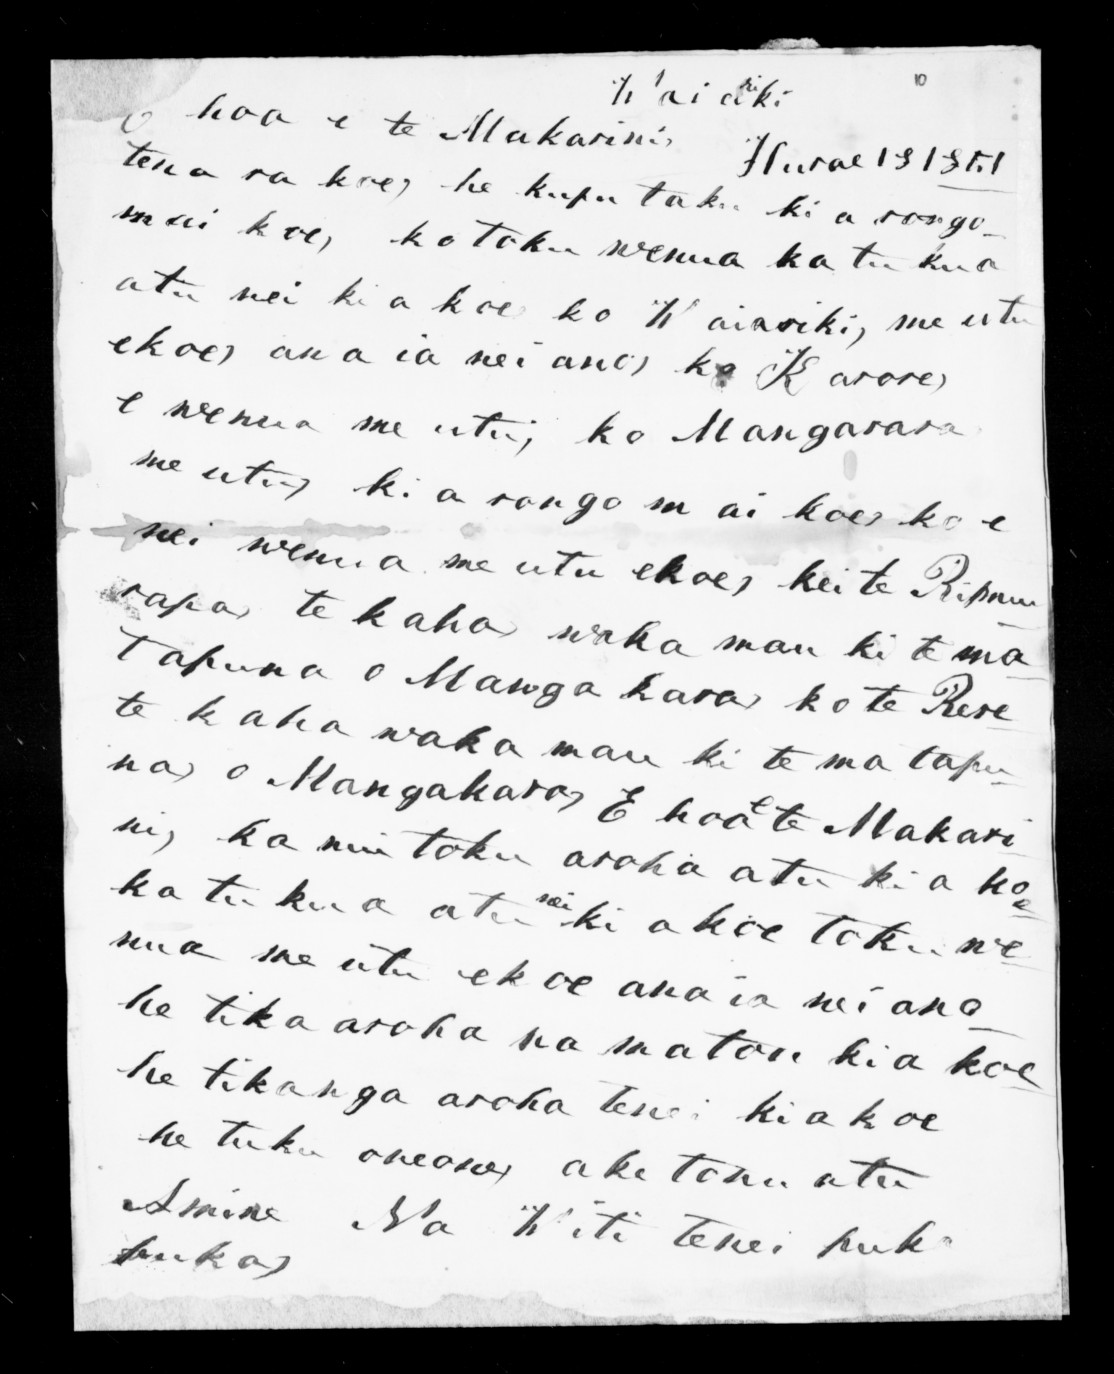 10
Waiariki
Hurae 13 1851
E hoa e te Makarini,
tena ra koe, he kupu taku ki a rongo-
mai koe, ko toku wenua ka tukua
atu nei ki a koe ko Waiariki, me utu
ekoe, ana ia nei ano, ko Karore,
e wenua me utu, ko Mangarara
me utu, ki a rongo mai koe, ko e
nei wenua me utu ekoe, kei te
rapa, te kaha, waka mau ki te ma-
tapuna o Mangakara, ko te Rere
te kaha waka mau ki te matapu-
na, o Mangakara, E hoa e te Makari-
ni, ka nui toku aroha atu ki a koe
ka tukua atu nei ki a koe toku we-
nua me utu ekoe ana ia nei ano-
he tika aroha na matou ki a koe
he tikanga aroha tenei ki a koe
he tuku oneone, ake tonu atu
Amine Na Witi tenei puka
puka,